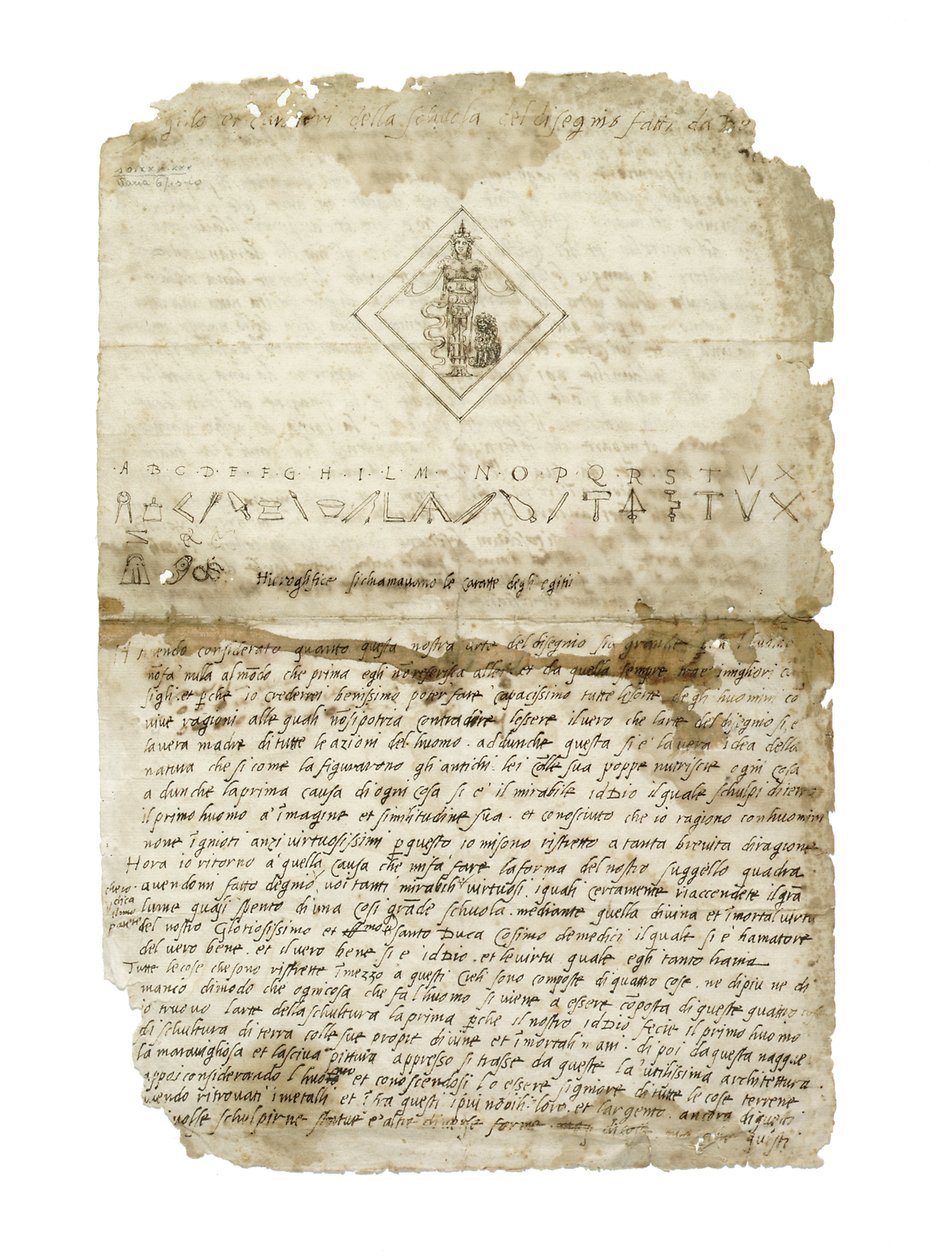 et caratteri della schuola del disegno fatti da
A · B · C · D · E · F · G · H · I · L · M · N · O · P · Q · R · S · T V X
Z
Hieroglifice si chiamavano le caratte degli egitti
Avendo considerato quanto questa nostra arte del disegnio sia grande
nulla al mōdo che prima egli nō referisca alle luci da quella sempre trae i migliori cō
sigli · et p̄che io crederrei benissimo poter fare capacissimo tutte le sorte degli huomini cō
vive ragioni alle quali nō si potria contradire lessere il vero che larte del disegnio si e
la vera madre di tutte le azioni del huomo · addunche questa si e la vera idea della
natura che si come la figuravono gli antichi · lei cōlle sua poppe nutriscie ogni cosa
adunche la prima causa di ogni cosa si e il mirabile idDio il quale schulpi di terra
il primo huomo a imagine et similitudine sua · et conosciuto che io ragiono con huomini
none ignioti anzi virtuosissimi p̄ questo io mi sono ristretto a tanta brevita di ragione
Hora io ritorno a quella causa che mi fa fare la forma del nostro suggello quadra
avendomi fatto degnio voi tanti mirabili virtuosi i quali certamente riaccendete il grā
lume quasi spento di una cosi grāde schuola · mediante quella divina et īmortal virtu
del nostro Gloriosissimo et santo Duca Cosimo de medici il quale si e hamatore
del vero bene · et il vero bene si e idDio · et le virtu quale egli tanto hama
Tutte le cose che sono ristrette ī mezzo a questi Cieli sono composte di quattro cose · ne di piu ne di
manco dimodo che ogni cosa che fa l huomo si viene a essere cōposta di queste quattro
io truovo larte della schultura la prima p̄che il nostro idDio fecie il primo huomo
di schultura di terra colle sue proprie divine et īmortali mani · di poi da questa nacque
la maravigliosa et lasciva pittura appresso si trasse da queste la utilissima architettura ·
appoi considerando l huomo et conosciendosi lo essere signiore di tutte le cose terrene
avendo ritrovati i metalli et ī fra questi i piu nobili loro · et largento · ancora di questi
volse schulpirne statue e altre diverse forme questi